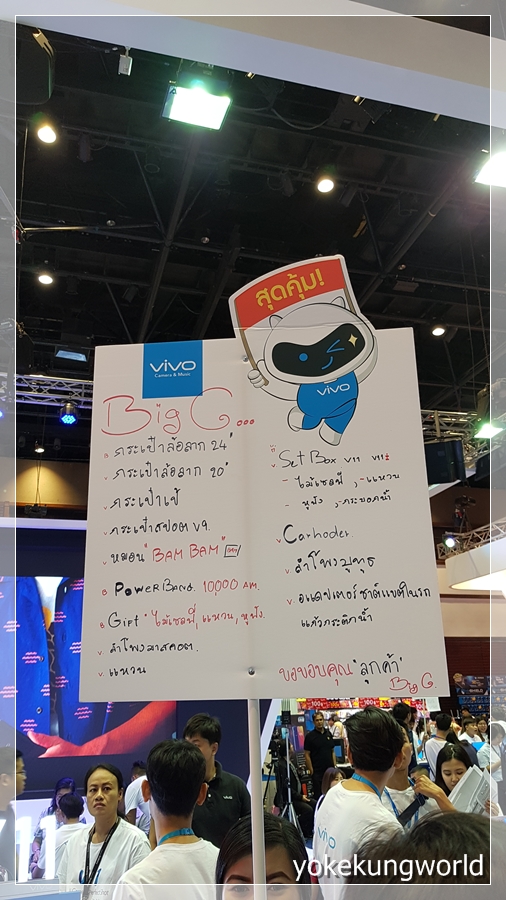 สุดคุ้ม!
vivo
Camera & Music
vivo
Big C...
กระเป๋าล้อลาก 24"
กระเป๋าล้อลาก 20"
กระเป๋าเป้
กระเป๋าสปอต V9.
หมอน "BAM BAM"
POWERBANG. 10000 AM.
Gift " ไม้เซลฟี่, แหวน, หูฟัง.
ลำโพงมาสคอต.
แหวน
Set Box V11 V11i
- ไม้เซลฟี่ , - แหวน
- หูฟัง , - กระบอกน้ำ
Carhoder.
ลำโพงบูทูธ
อแดปเตอร์ชาต์แบตในรถ
แก้วกระติกน้ำ
ขอขอบคุณ "ลูกค้า"
Big C.
vivo
vivo
11
yokekungworld